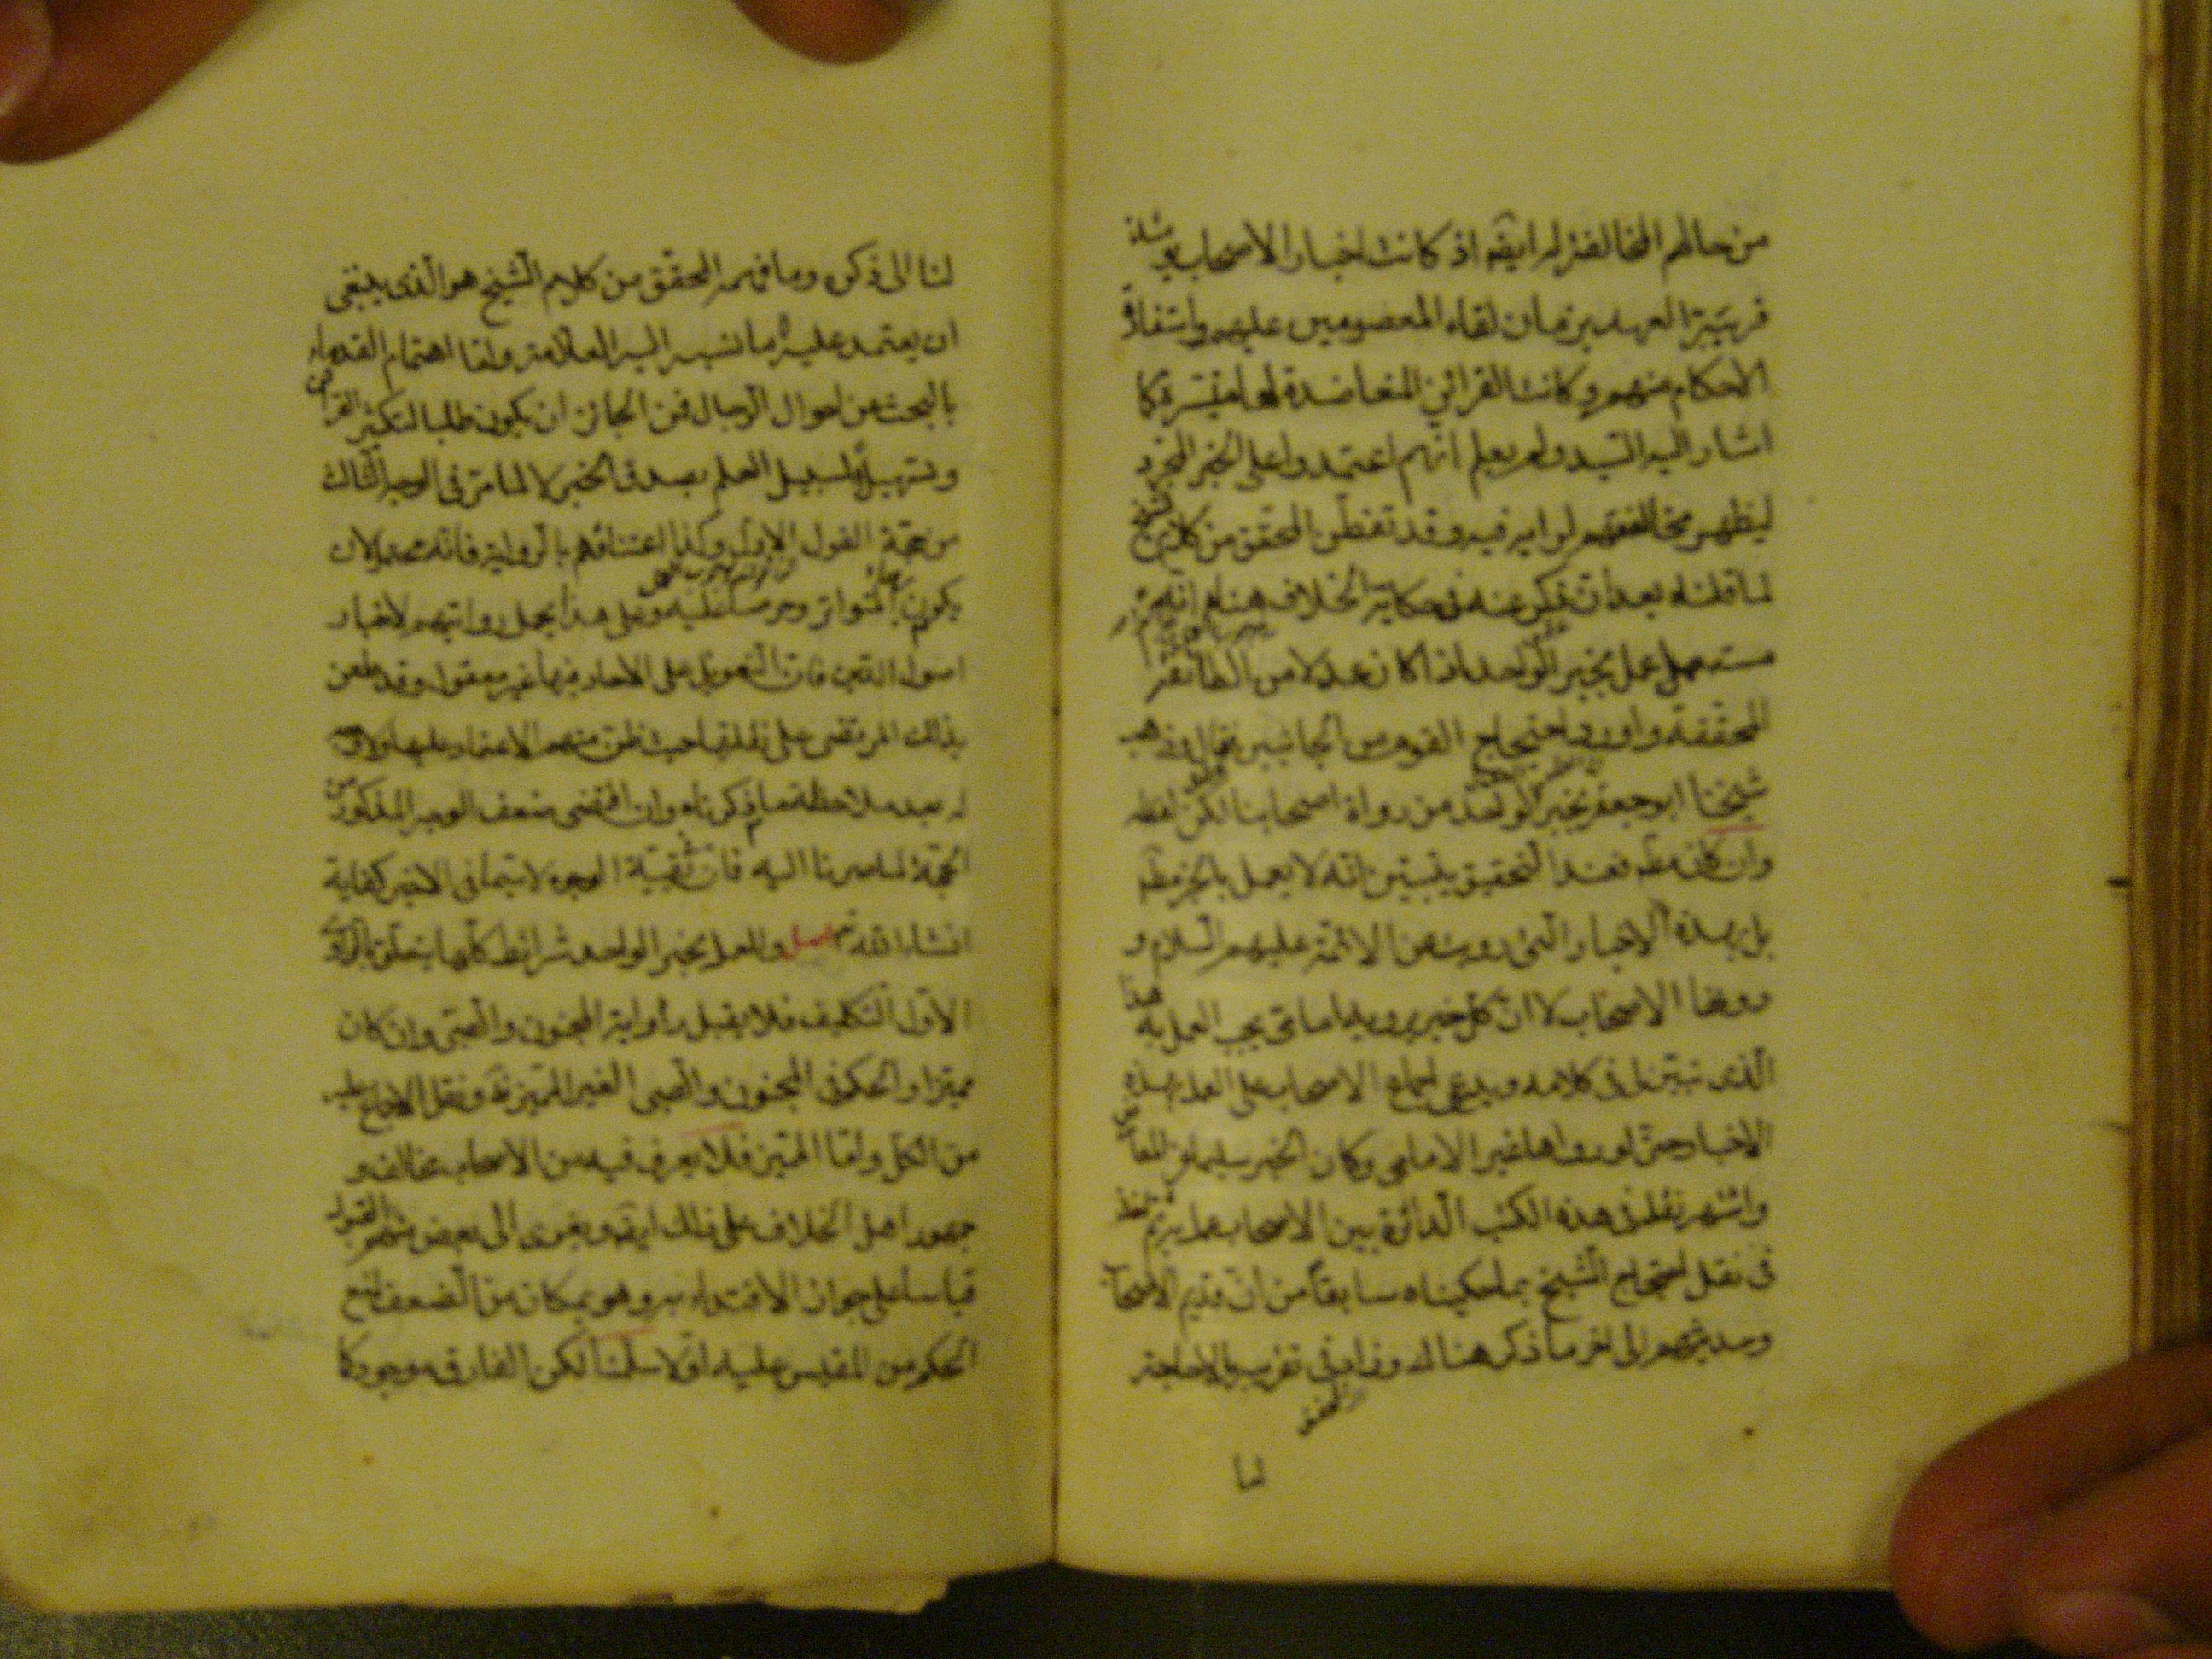 من حالهم المخالفة له ايضا اذ كانت اخبار الاصحاب يومئذ
قريبة العهد بزمان لقاء المعصومين عليهم واستفادة
الاحكام منهم وكانت القرائن المتعاضدة لها متيسرة كما
اشار اليه السيد ولم يعلم انهم اعتمدوا على الخبر المجرد
ليظهر مخالفتهم لرايه فيه وقد تفطن المحقق من كلام الشيخ
لما قلناه بعد ان ذكر عنه فى حكاية الخلاف هنا انه
عمل بخبر الواحد اذا كان عدلا من الطائفة
المحققة واورد احتجاج القوم من الجانبين فقال وذهب
شيخنا ابو جعفر بخبر الواحد من رواة اصحابنا لكن لفظه
وان كان مط فعند التحقيق يتبين انه لا يعمل بالخبر مط
بل بهذه الاخبار التى رويت عن الائمة عليهم السلام و
دونها الاصحاب لا ان كل خبر يرويه امامى يجب العمل به هذا
الذى تبين لى فى كلامه ويدعى اجماع الاصحاب على العمل بهذه
الاخبار حتى لو رواها غير الامامى وكان الخبر سليما عن المعارض
واشتهر نقله فى هذه الكتب الدائرة بين الاصحاب عمل به ثم اخذ
فى نقل احتجاج الشيخ بما حكيناه سابقا من ان قديم الاصحاب
وحديثهم الى اخر ما ذكر هناك وزاد فى تقريبه ما لا حاجة
المحقق
لنا
لنا الى ذكره وما فهمه المحقق من كلام الشيخ هو الذى ينبغى
ان يعتمد عليه لا ما نسبه اليه العلامة واما اهتمام القدماء
بالبحث عن احوال الرجال فمن الجائز ان يكون طلبا لتكثير القرائن
وتسهيلا لسبيل العلم بصدق الخبر لا لما مر فى الوجه الثالث
من حجة القول الاول وكذا اعتناؤهم بالرواية فانه محتمل لان
يكون رجاء للتواتر وحرصا عليه وعلى هذا يحمل روايتهم لاخبار
اصول الدين فان التعويل على الاحاد فيها غير معقول وقد طعن
بذلك المرتضى على نقلها حيث ظن منهم الاعتماد عليها ولا وجه
له بعد ملاحظة ما ذكرناه وان اقتضى ضعف الوجه المذكور من
الحجة لما صرنا اليه فان فى بقية الوجوه لا سيما فى الاخير كفاية
انشاء الله تع اصل وللعمل بخبر الواحد شرائط كلها يتعلق بالراوى
الاول التكليف فلا يقبل رواية المجنون والصبى وان كان
مميزا والحكم فى المجنون والصبى الغير المميز ظ ونقل الاجماع عليه
من الكل واما المميز فلا يعرف فيه من الاصحاب مخالف و
جمهور اهل الخلاف على ذلك ايضا ويعزى الى بعض منهم القبول
قياسا على جواز الاقتداء به وهو بمكان من الضعف لمنع
الحكم من المقيس عليه اولا سلمنا لكن الفارق موجود كما